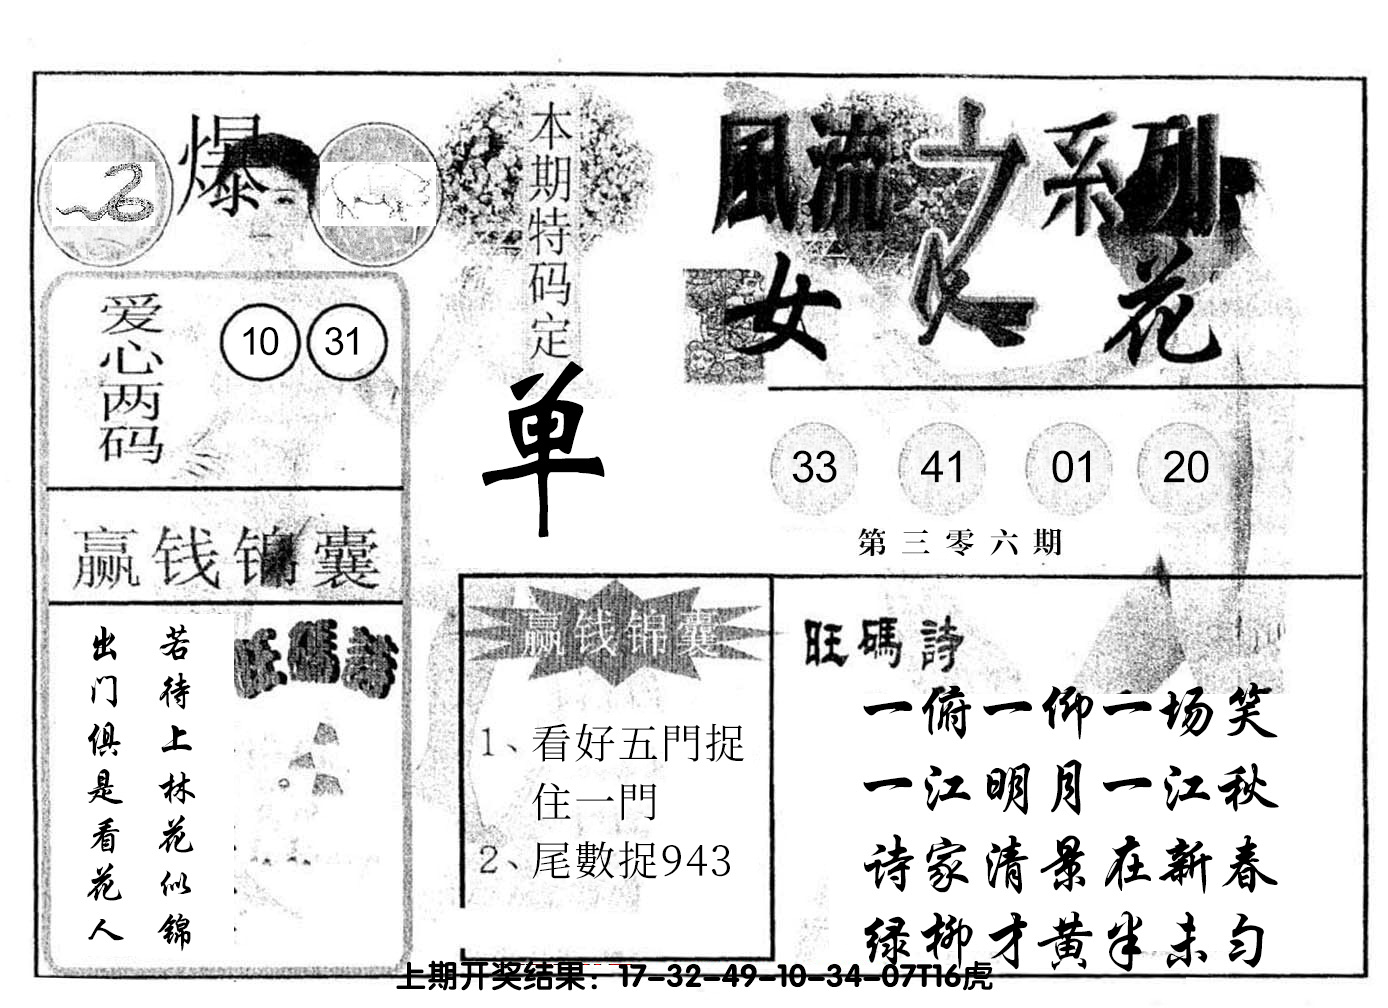 爆
本期特码定
单
風流之系列
女人花
爱心两码
10 31
33 41 01 20
第三零六期
赢钱锦囊
若待上林花似锦
出门俱是看花人
旺碼詩
赢钱锦囊
1、看好五門捉
住一門
2、尾數捉943
旺碼詩
一俯一仰一场笑
一江明月一江秋
诗家清景在新春
绿柳才黄半未匀
上期开奖结果：17-32-49-10-34-07T16虎